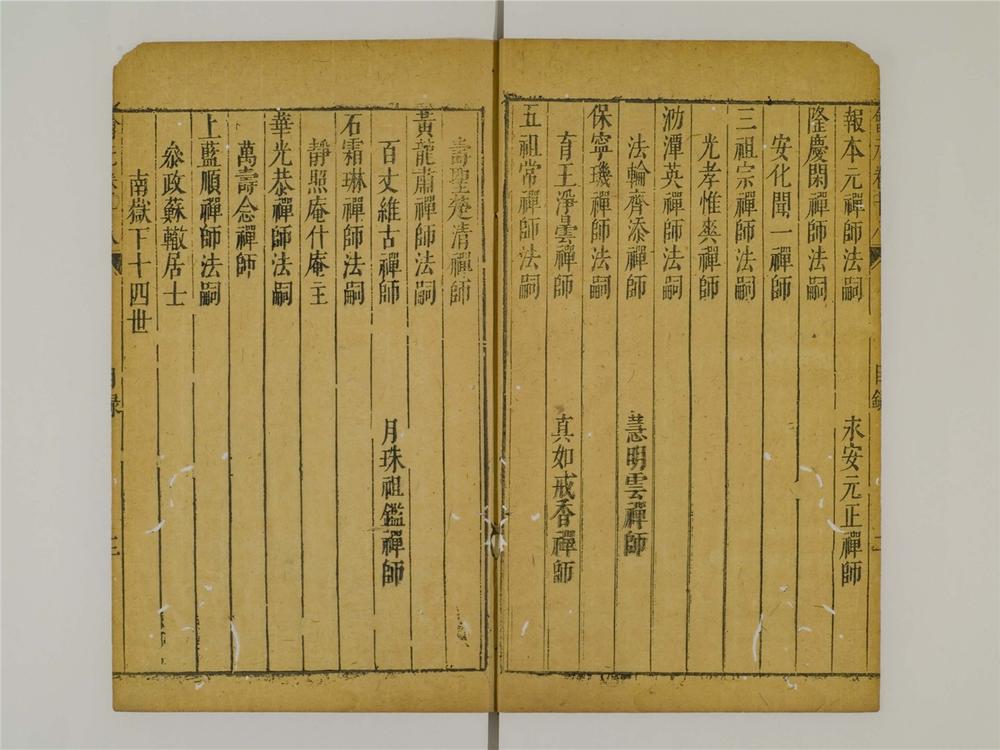 報本元禪師法嗣
永安元正禪師
隆慶閑禪師法嗣
安化聞一禪師
三祖宗禪師法嗣
光孝惟爽禪師
泐潭英禪師法嗣
法輪齊添禪師
慧明雲禪師
保寧璣禪師法嗣
育王淨曇禪師
真如戒香禪師
五祖常禪師法嗣
壽聖楚清禪師
黃龍肅禪師法嗣
百丈維古禪師
月珠祖鑑禪師
石霜琳禪師法嗣
靜照庵什庵主
華光恭禪師法嗣
萬壽念禪師
上藍順禪師法嗣
叅政蘇轍居士
南嶽下十四世
目錄